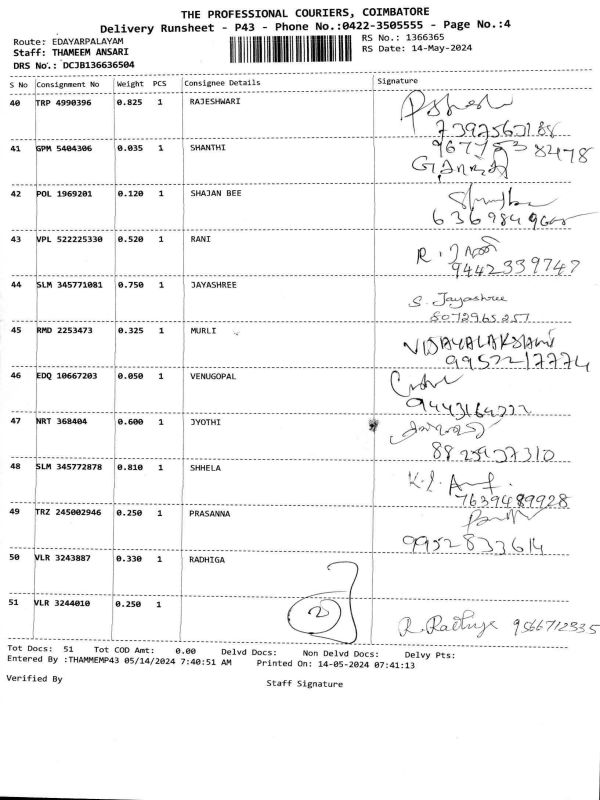 THE PROFESSIONAL COURIERS, COIMBATORE
Delivery Runsheet - P43 - Phone No.:0422-3505555 - Page No.:4
Route: EDAYARPALAYAM RS No.: 1366365
Staff: THAMEEM ANSARI RS Date: 14-May-2024
DRS No.: DCJB136636504
S No Consignment No Weight PCS Consignee Details Signature
40 TRP 4990396 0.825 1 RAJESHWARI
41 GPM 5404306 0.035 1 SHANTHI
42 POL 1969201 0.120 1 SHAJAN BEE
43 VPL 522225330 0.520 1 RANI
9442339747
44 SLM 345771081 0.750 1 JAYASHREE
S. Jayashree
8072965257
45 RMD 2253473 0.325 1 MURLI
VIJAYALAKSHMI
9952217774
46 EDQ 10667203 0.050 1 VENUGOPAL
47 NRT 368404 0.600 1 JYOTHI
48 SLM 345772878 0.810 1 SHHELA
7639489928
49 TRZ 245002946 0.250 1 PRASANNA
9952833614
50 VLR 3243887 0.330 1 RADHIGA
51 VLR 3244010 0.250 1
2
R. Radhiga 9566712335
Tot Docs: 51 Tot COD Amt: 0.00 Delvd Docs: Non Delvd Docs: Delvy Pts:
Entered By :THAMMEMP43 05/14/2024 7:40:51 AM Printed On: 14-05-2024 07:41:13
Verified By Staff Signature